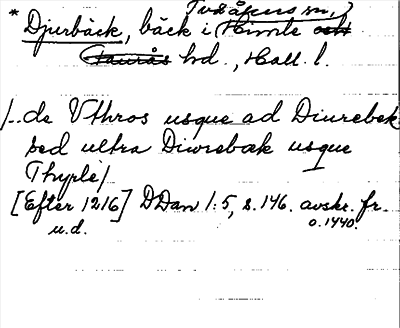 Tvååkers sn,
* Djurbäck, bäck i Himle och
Faurås hd., Hall. l.
/..de Vthros usque ad Diurebek
sed ultra Diwrebæk usque
Thyrlè/
[Efter 1216] DDan 1:5, s. 146. avskr. fr.
u.d. o. 1440.